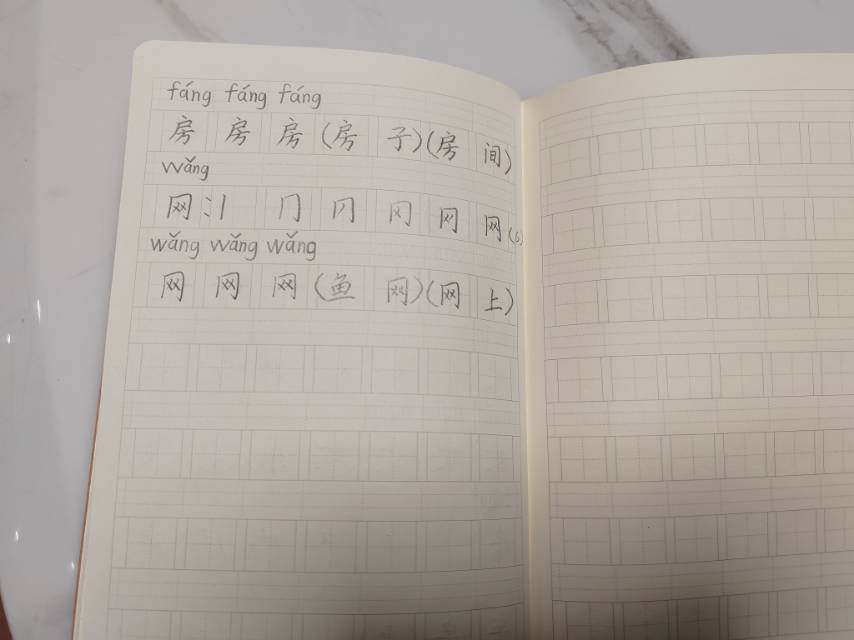 fáng fáng fáng
房 房 房 (房 子)(房 间)
wǎng
网:丨 冂 冈 网 网 (6)
wǎng wǎng wǎng
网 网 网 (鱼 网)(网 上)